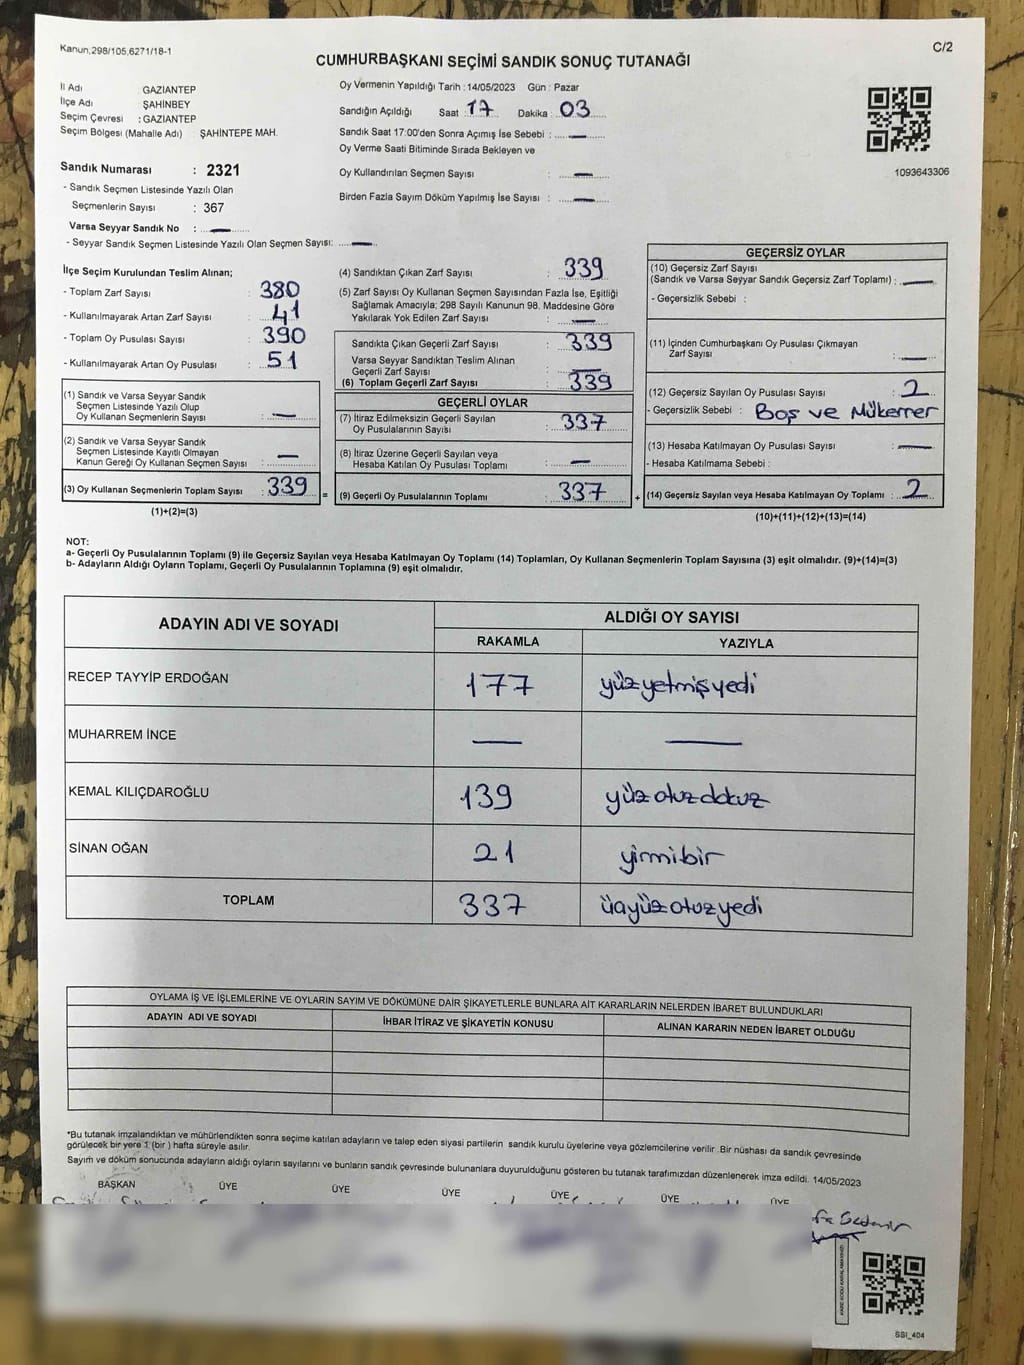 Kanun,298/105,6271/18-1
C/2
CUMHURBAŞKANI SEÇİMİ SANDIK SONUÇ TUTANAĞI
İl Adı : GAZİANTEP
İlçe Adı : ŞAHİNBEY
Seçim Çevresi : GAZİANTEP
Seçim Bölgesi (Mahalle Adı) ŞAHİNTEPE MAH.
Sandık Numarası : 2321
- Sandık Seçmen Listesinde Yazılı Olan
Seçmenlerin Sayısı : 367
Varsa Seyyar Sandık No : —
- Seyyar Sandık Seçmen Listesinde Yazılı Olan Seçmen Sayısı: —
Oy Vermenin Yapıldığı Tarih : 14/05/2023 Gün : Pazar
Sandığın Açıldığı Saat 17 Dakika : 03
Sandık Saat 17:00'den Sonra Açımış İse Sebebi : —
Oy Verme Saati Bitiminde Sırada Bekleyen ve
Oy Kullandırılan Seçmen Sayısı : —
Birden Fazla Sayım Döküm Yapılmış İse Sayısı : —
1093643306
İlçe Seçim Kurulundan Teslim Alınan;
- Toplam Zarf Sayısı : 380
- Kullanılmayarak Artan Zarf Sayısı : 41
- Toplam Oy Pusulası Sayısı : 390
- Kullanılmayarak Artan Oy Pusulası : 51
(1) Sandık ve Varsa Seyyar Sandık
Seçmen Listesinde Yazılı Olup
Oy Kullanan Seçmenlerin Sayısı : —
(2) Sandık ve Varsa Seyyar Sandık
Seçmen Listesinde Kayıtlı Olmayan
Kanun Gereği Oy Kullanan Seçmen Sayısı : —
(3) Oy Kullanan Seçmenlerin Toplam Sayısı : 339 =
(1)+(2)=(3)
(4) Sandıktan Çıkan Zarf Sayısı : 339
(5) Zarf Sayısı Oy Kullanan Seçmen Sayısından Fazla İse, Eşitliği
Sağlamak Amacıyla; 298 Sayılı Kanunun 98. Maddesine Göre
Yakılarak Yok Edilen Zarf Sayısı : —
Sandıkta Çıkan Geçerli Zarf Sayısı : 339
Varsa Seyyar Sandıktan Teslim Alınan
Geçerli Zarf Sayısı : —
(6) Toplam Geçerli Zarf Sayısı : 339
GEÇERLİ OYLAR
(7) İtiraz Edilmeksizin Geçerli Sayılan
Oy Pusulalarının Sayısı : 337
(8) İtiraz Üzerine Geçerli Sayılan veya
Hesaba Katılan Oy Pusulası Toplamı : —
(9) Geçerli Oy Pusulalarının Toplamı : 337 +
GEÇERSİZ OYLAR
(10) Geçersiz Zarf Sayısı
(Sandık ve Varsa Seyyar Sandık Geçersiz Zarf Toplamı) : —
- Geçersizlik Sebebi :
(11) İçinden Cumhurbaşkanı Oy Pusulası Çıkmayan
Zarf Sayısı : —
(12) Geçersiz Sayılan Oy Pusulası Sayısı : 2
- Geçersizlik Sebebi : Boş ve Mükerrer
(13) Hesaba Katılmayan Oy Pusulası Sayısı : —
- Hesaba Katılmama Sebebi :
(14) Geçersiz Sayılan veya Hesaba Katılmayan Oy Toplamı : 2
(10)+(11)+(12)+(13)=(14)
NOT:
a- Geçerli Oy Pusulalarının Toplamı (9) ile Geçersiz Sayılan veya Hesaba Katılmayan Oy Toplamı (14) Toplamları, Oy Kullanan Seçmenlerin Toplam Sayısına (3) eşit olmalıdır. (9)+(14)=(3)
b- Adayların Aldığı Oyların Toplamı, Geçerli Oy Pusulalarının Toplamına (9) eşit olmalıdır.
ADAYIN ADI VE SOYADI
ALDIĞI OY SAYISI
RAKAMLA YAZIYLA
RECEP TAYYİP ERDOĞAN 177 yüzyetmişyedi
MUHARREM İNCE — —
KEMAL KILIÇDAROĞLU 139 yüzotuzdokuz
SİNAN OĞAN 21 yirmibir
TOPLAM 337 üçyüzotuzyedi
OYLAMA İŞ VE İŞLEMLERİNE VE OYLARIN SAYIM VE DÖKÜMÜNE DAİR ŞİKAYETLERLE BUNLARA AİT KARARLARIN NELERDEN İBARET BULUNDUKLARI
ADAYIN ADI VE SOYADI İHBAR İTİRAZ VE ŞİKAYETİN KONUSU ALINAN KARARIN NEDEN İBARET OLDUĞU
*Bu tutanak imzalandıktan ve mühürlendikten sonra seçime katılan adayların ve talep eden siyasi partilerin sandık kurulu üyelerine veya gözlemcilerine verilir. Bir nüshası da sandık çevresinde
görülecek bir yere 1 (bir ) hafta süreyle asılır.
Sayım ve döküm sonucunda adayların aldığı oyların sayılarını ve bunların sandık çevresinde bulunanlara duyurulduğunu gösteren bu tutanak tarafımızdan düzenlenerek imza edildi. 14/05/2023
BAŞKAN ÜYE ÜYE ÜYE ÜYE ÜYE ÜYE
SSI_404